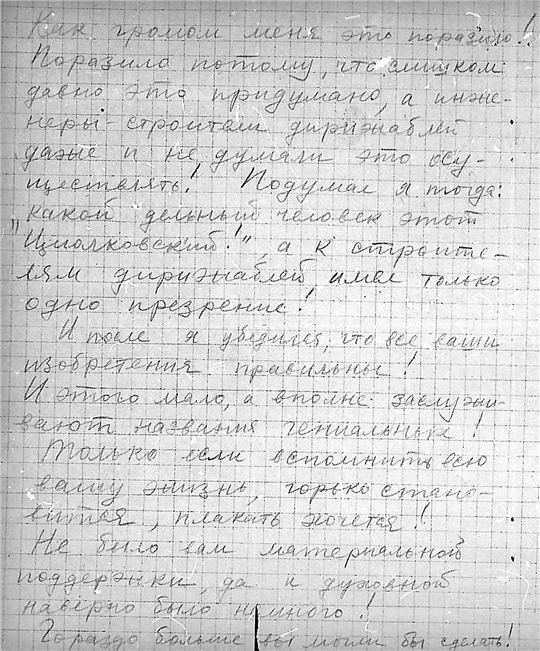 Как громом меня это поразило!
Поразила потому, что слишком
давно это придумано, а инже-
неры-строители дирижаблей
даже и не думали это осу-
ществлять! Подумал я тогда:
какой дельный человек этот
"Циолковский!", а к строите-
лям дирижаблей, имел только
одно презрение!
И после я убедился, что все ваши
изобретения правильны!
И этого мало, а вполне заслужи-
вают названия гениальные!
Только если вспомнить всю
вашу жизнь, горько стано-
вится, плакать хочется!
Не было вам материальной
поддержки, да и духовной
наверно было немного!
Гораздо больше вы могли бы сделать!